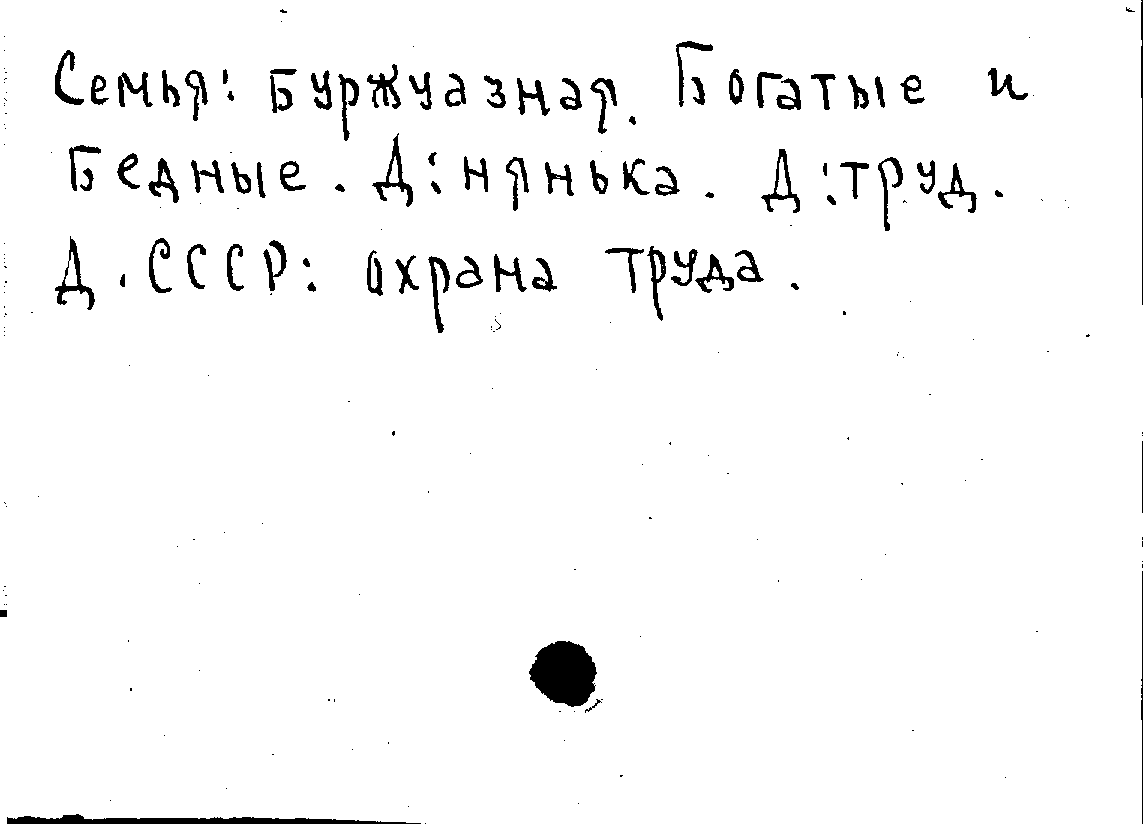 Семья: Буржуазная. Богатые и
Бедные. Д: нянька. Д: труд.
Д. СССР: охрана труда.